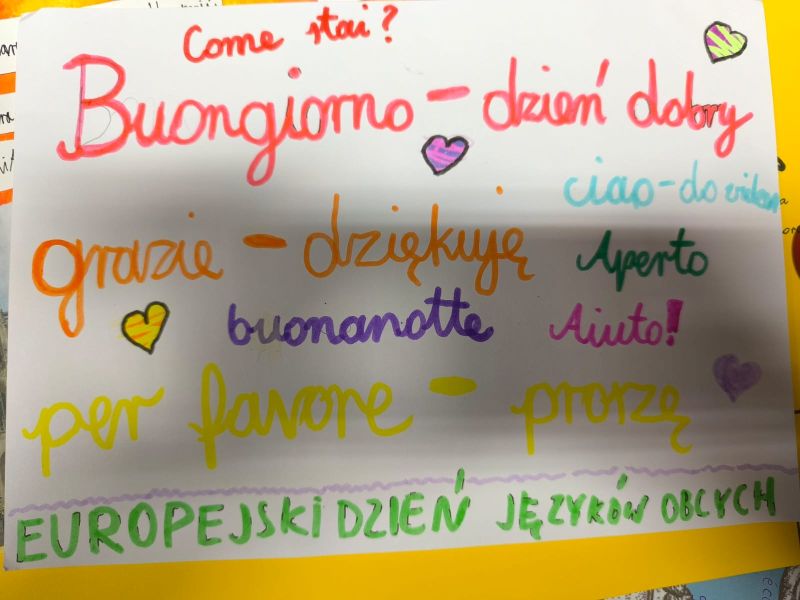 Come stai?
Buongiorno - dzień dobry
ciao - do widzen
grazie - dziękuję
Aperto
buonanotte
Aiuto!
per favore - prorzę
EUROPEJSKI DZIEŃ JĘZYKÓW OBCYCH